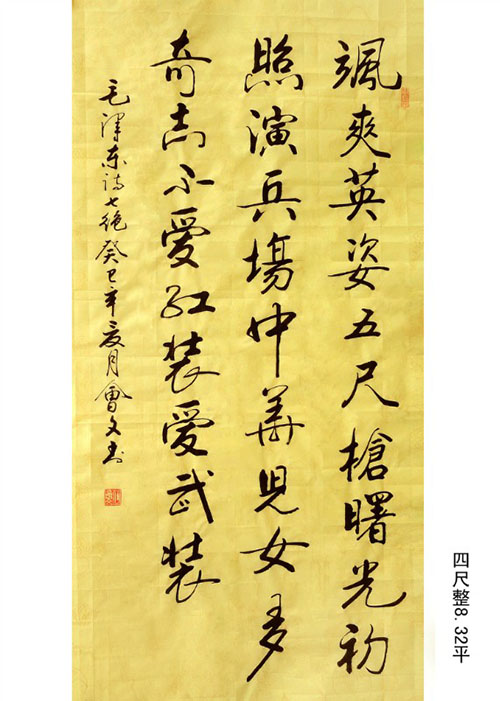 颯爽英姿五尺槍曙光初
照演兵場中華兒女多
奇志不愛紅裝愛武裝
毛澤東詩七絕癸巳年夏月會文書
四尺整8.32平